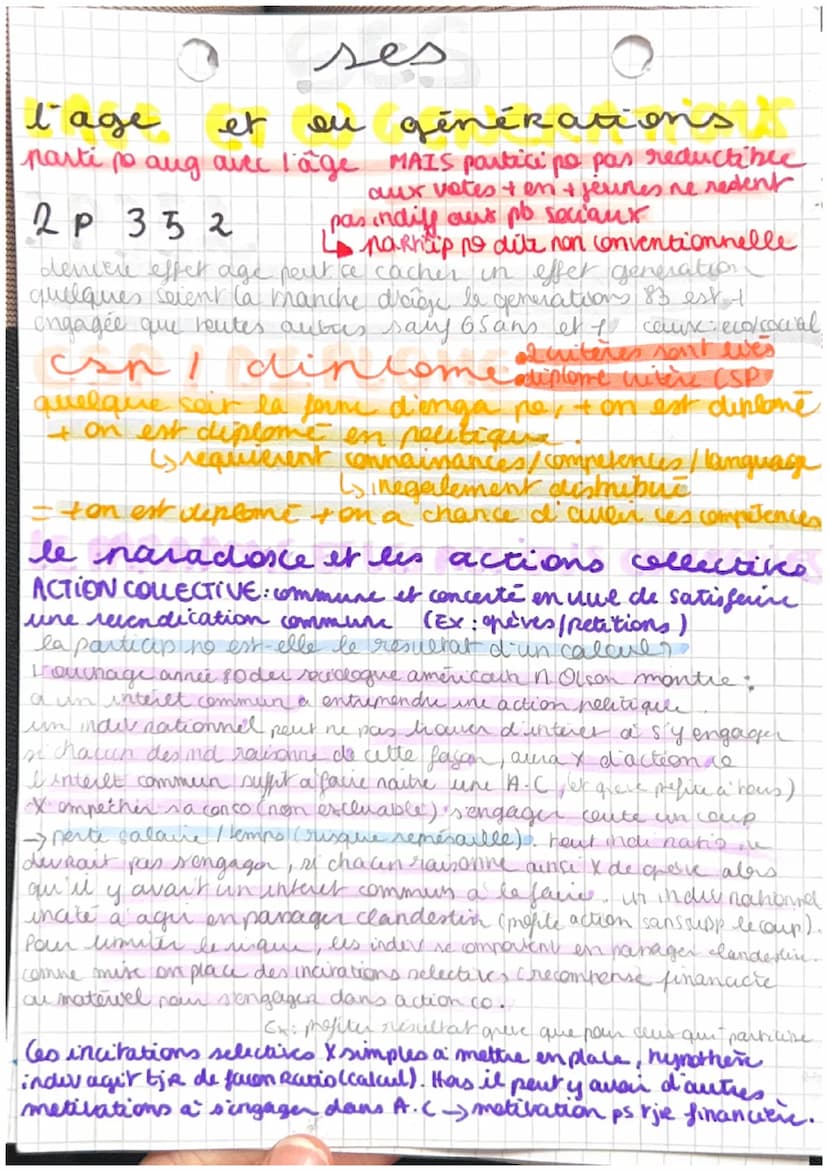 ses
l'age et ou générations
parti po aug avec l'âge MAIS particip po pas reductible
aux votes + en + jeunes ne restent
2 P 3 5 2
pas indiff aux pb sociaux
↳ particip po dite non conventionnelle
derrière effet age peut ce cacher un effet generation
quelques soient la tranche d'âge la generations 83 est -
engagée que toutes autres sauf 65ans et + ceux: eco/social
csp / diplome
• 2 critères sont liés
• diplome critère CSP
quelque soit la forme d'enga po, + on est diplomé
+ on est diplomé en politique.
↳ requièrent connaissances/competences/language
↳ inegalement distribué
= + on est diplomé + on a chance d'avoir ces compétences
le paradoxe et les actions collectives
ACTION COLLECTIVE: commune et concerté en vue de satisfaire
une revendication commune (Ex: grèves/petitions)
la particip po est-elle le resultat d'un calcul?
L'ouvrage année 80 du sociologue américain M. Olson montre:
a un intéret commun a entreprendre une action politique.
un indiv rationnel peut ne pas trouver d'interet a s'y engager
si chacun des ind raisonne de cette façon, aura X d'action co
L'interet commun suffit a faire naitre une A.C (et grève profite à tous)
X empecher sa conso (non excluable). s'engager coute un coup
→ perte salaire / temps (risque represaille). tout indi ratio ne
devrait pas s'engager, si chacun raisonne ainsi X de grève alors
qu'il y avait un interet commun a le faire. un indiv rationnel
incité a agir en passager clandestin (profite action sans supp le coup).
Pour limiter le risque, les indiv se comportent en passager clandestin.
comme mise en place des incitations selectives (recompense financière
ou materiel pour s'engager dans action co.
Ex: profiter résultat grève que pour ceux qui participe
Ces incitations selectives X simples a mettre en place, hypothese
indiv agit tjr de façon ratio (calcul). Mais il peut y avoir d'autres
motivations a s'engager dans A.C → motivation ps tjr financière.